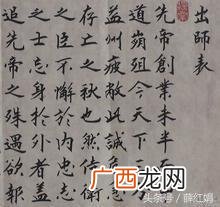 出師表
先帝創業未半
道崩殂今天下
益州疲敝此誠
存亡之秋也然侍衛
之臣不懈於內忠志
之士忘身於外者盖
追先帝之殊遇欲報
广西龙网
头条号 / 薛红娟